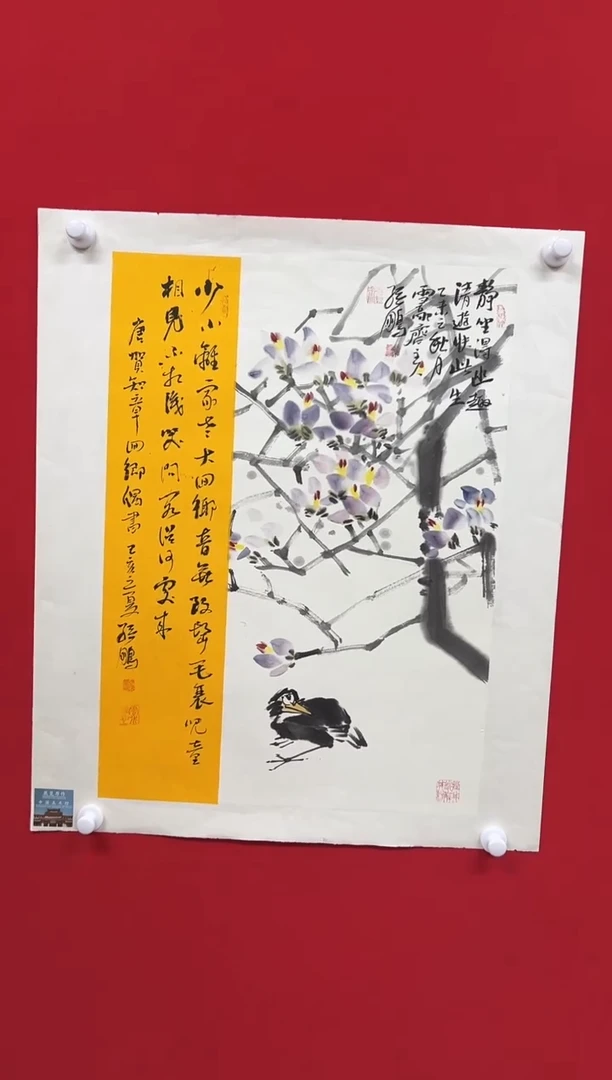 靜坐得幽趣
清遊快此生
乙未之秋月
齋主人
鵬
少小離家老大回鄉音無改鬢毛衰兒童
相見不相識笑問客從何處來
唐賀知章回鄉偶書 乙亥之夏 鵬